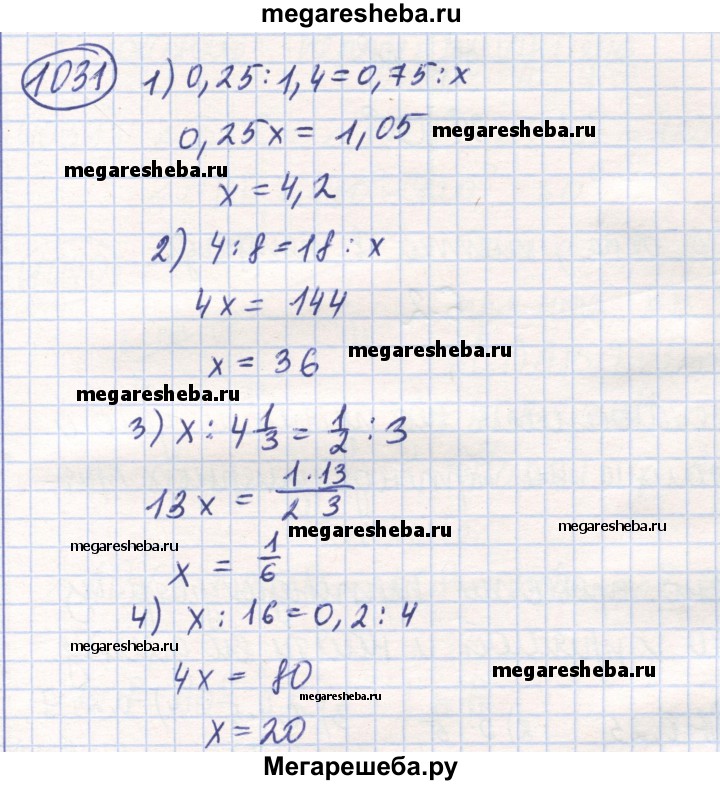 megaresheba.ru
1031 1) 0,25 : 1,4 = 0,75 : x
0,25x = 1,05 megaresheba.ru
megaresheba.ru
x = 4,2
2) 4 : 8 = 18 : x
4x = 144
x = 36 megaresheba.ru
megaresheba.ru
3) x : 4 1/3 = 1/2 : 3
13x = 1·13/2 3
megaresheba.ru megaresheba.ru megaresheba.ru
x = 1/6
4) x : 16 = 0,2 : 4
megaresheba.ru
4x = 80 megaresheba.ru
megaresheba.ru
x = 20
Мегарешеба.ру